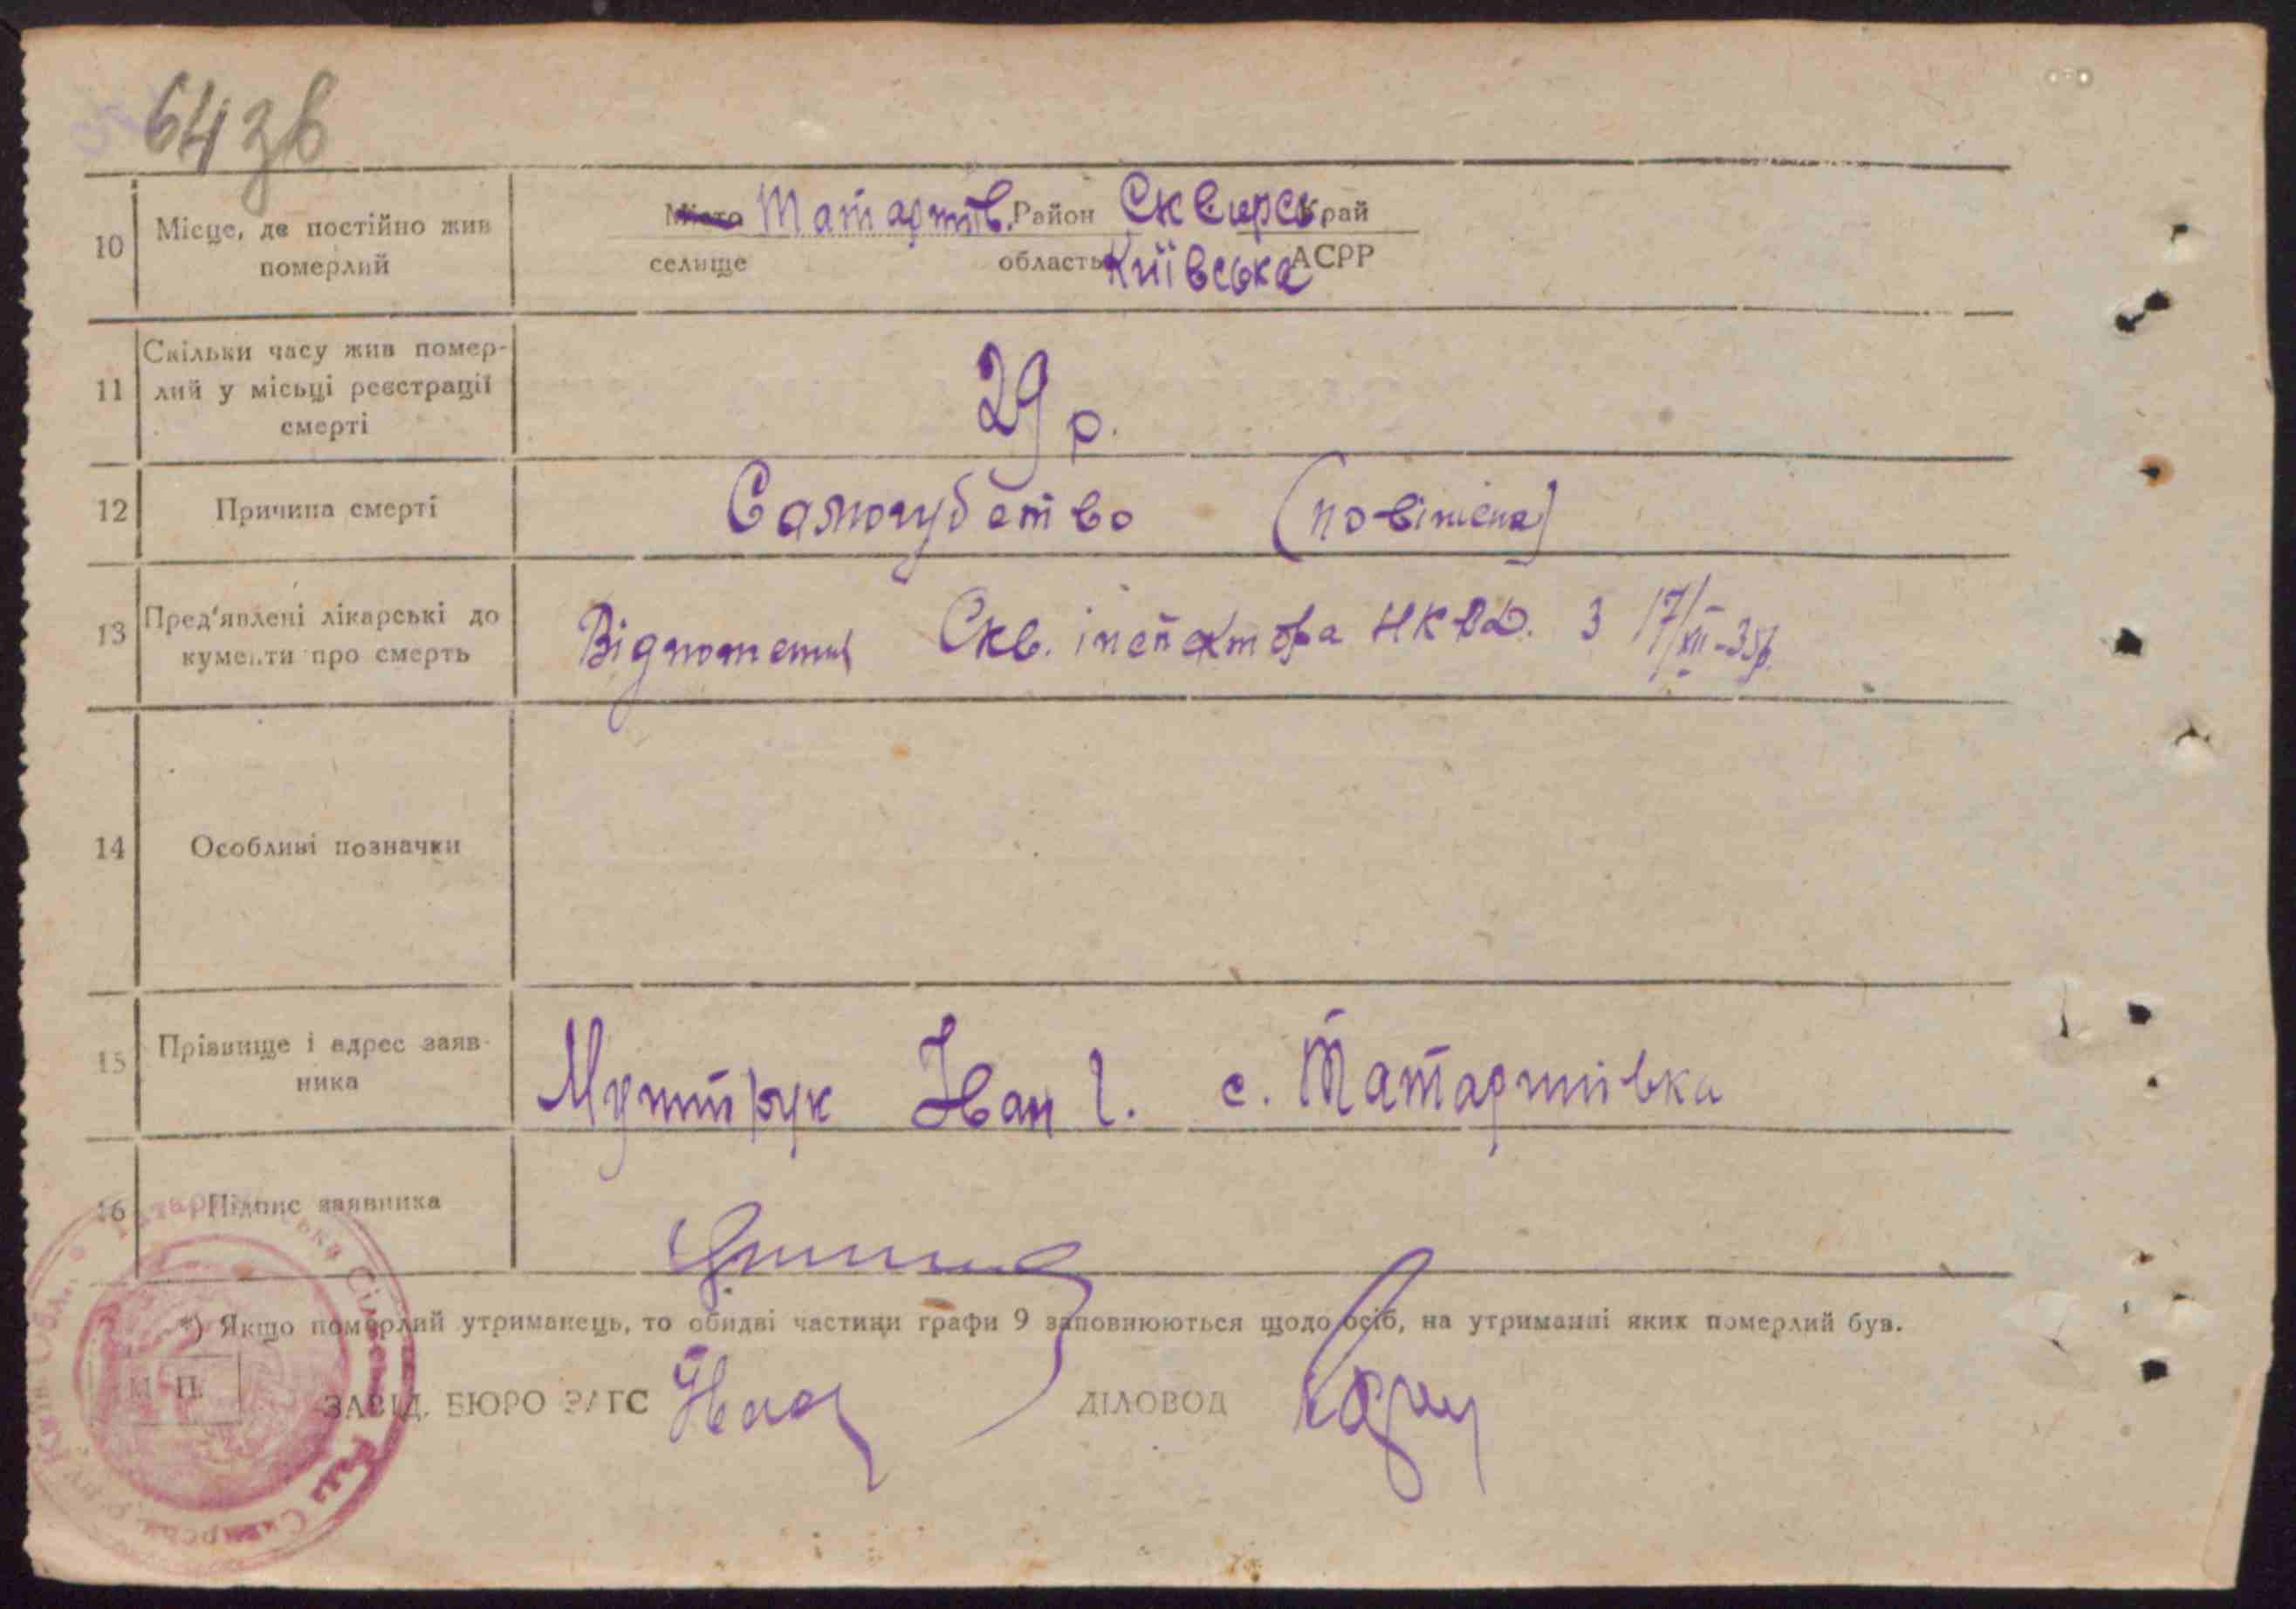 64 зв
10 Місце, де постійно жив померлий
Місто Татаршів. Район Сквирсь край
селище область Київська АСРР
11 Скільки часу жив помер-
лий у місьці реєстрації
смерті
29 р.
12 Причина смерті
Самогубство (повішена)
13 Пред'явлені лікарські до
кументи про смерть
Відношення Скв. інспектора НКВД. З 17/XII-35р.
14 Особливі позначки
15 Прізвище і адрес заяв-
ника
Іван І. с. Татаршівка
16 Підпис заявника
*) Якщо померлий утриманець, то обидві частини графи 9 заповнюються щодо осіб, на утриманні яких померлий був.
М. П.
ЗАВІД. БЮРО ЗАГС ДІЛОВОД